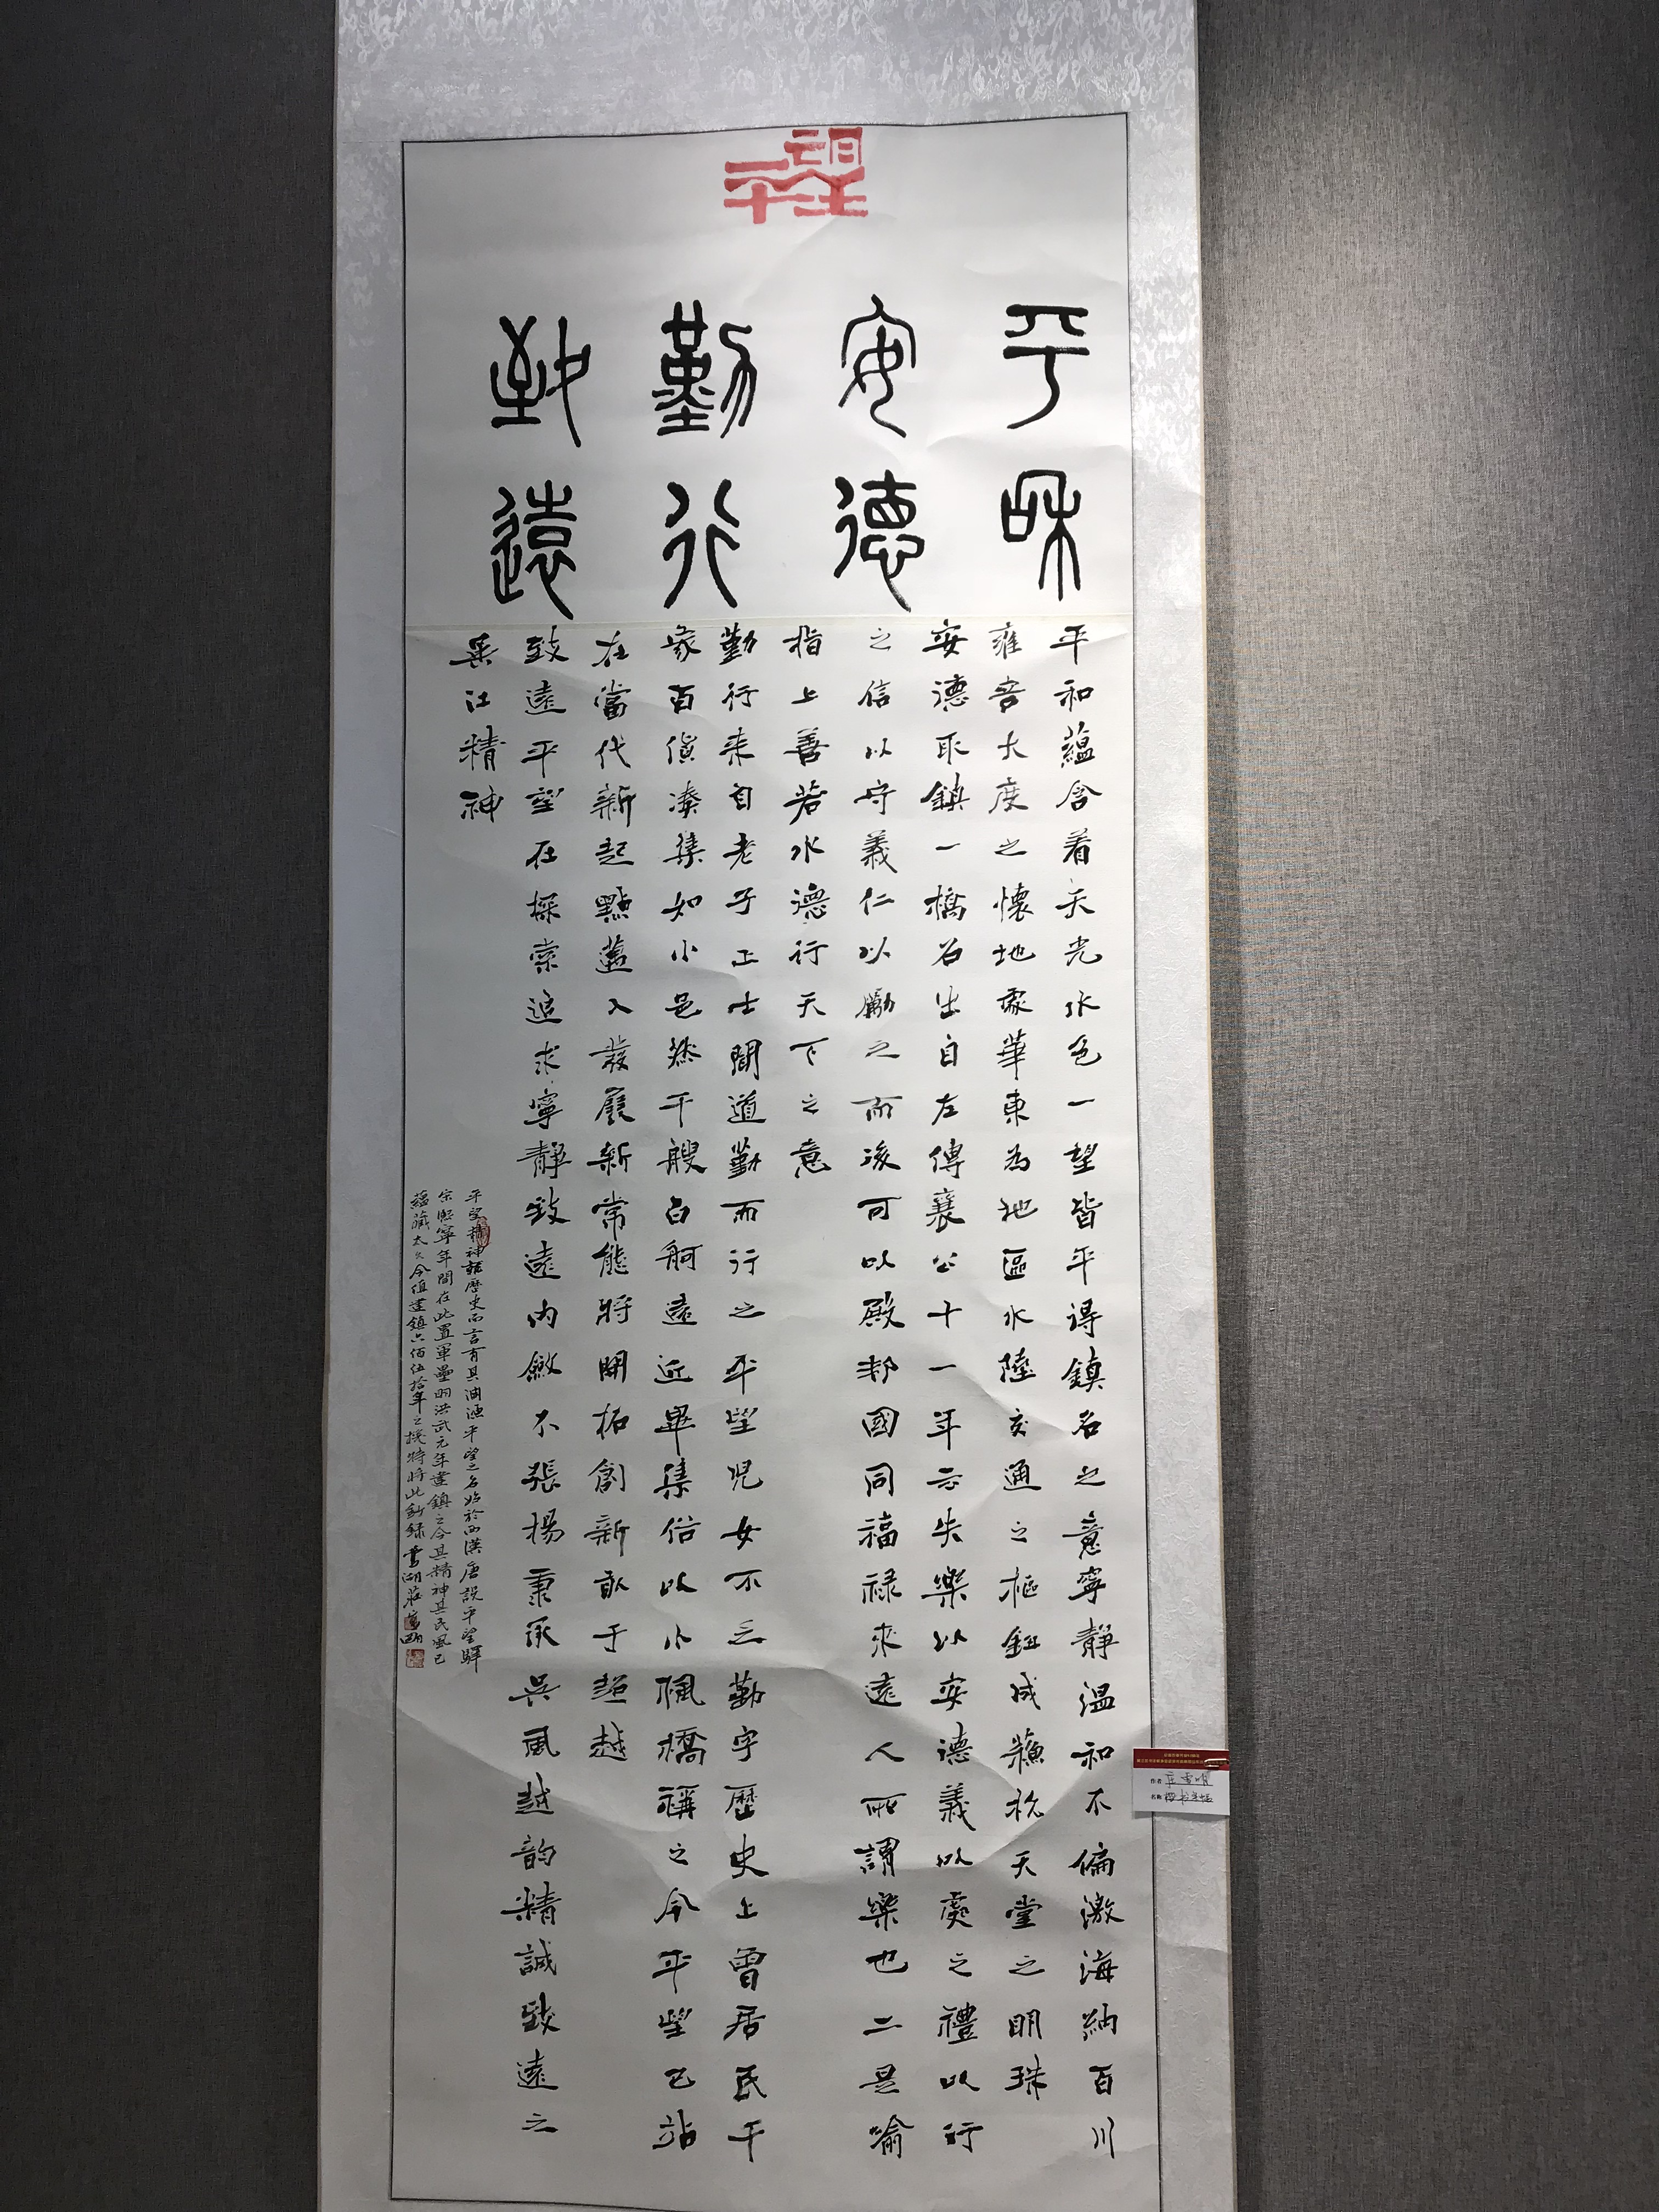 平望
平和
安德
勤行
致遠
平和蘊含着天光水色一望皆平得鎮名之意寧靜溫和不偏激海納百川
雍容大度之懷地處華東為地區水陸交通之樞鈕成蘇杭天堂之明珠
安德取鎮一橋名出自左傳襄公十一年云失樂以安德義以處之禮以行
之信以守義仁以勵之而後可以殿邦國同福祿來遠人所謂樂也二是喻
指上善若水德行天下之意
勤行来自老子上士聞道勤而行之平望兒女不忘勤字歷史上曾居民千
家百貨凑集如小邑然千艘百舸遠近畢集俗以小楓橋稱之今平望已站
在當代新起點邁入發展新常態將開拓創新敢于超越
致遠平望在探索追求寧靜致遠内斂不張揚秉承吳風越韵精誠致遠之
吳江精神
平望精神就歷史而言有其淵源平望之名始於西漢唐設平望驛
宋熙寧年間在此置軍壘明洪武元年建鎮之今其精神其民風已
蘊藏太久今值建鎮六佰伍拾年之機特将此鈔録鶯湖莊
作者
名称